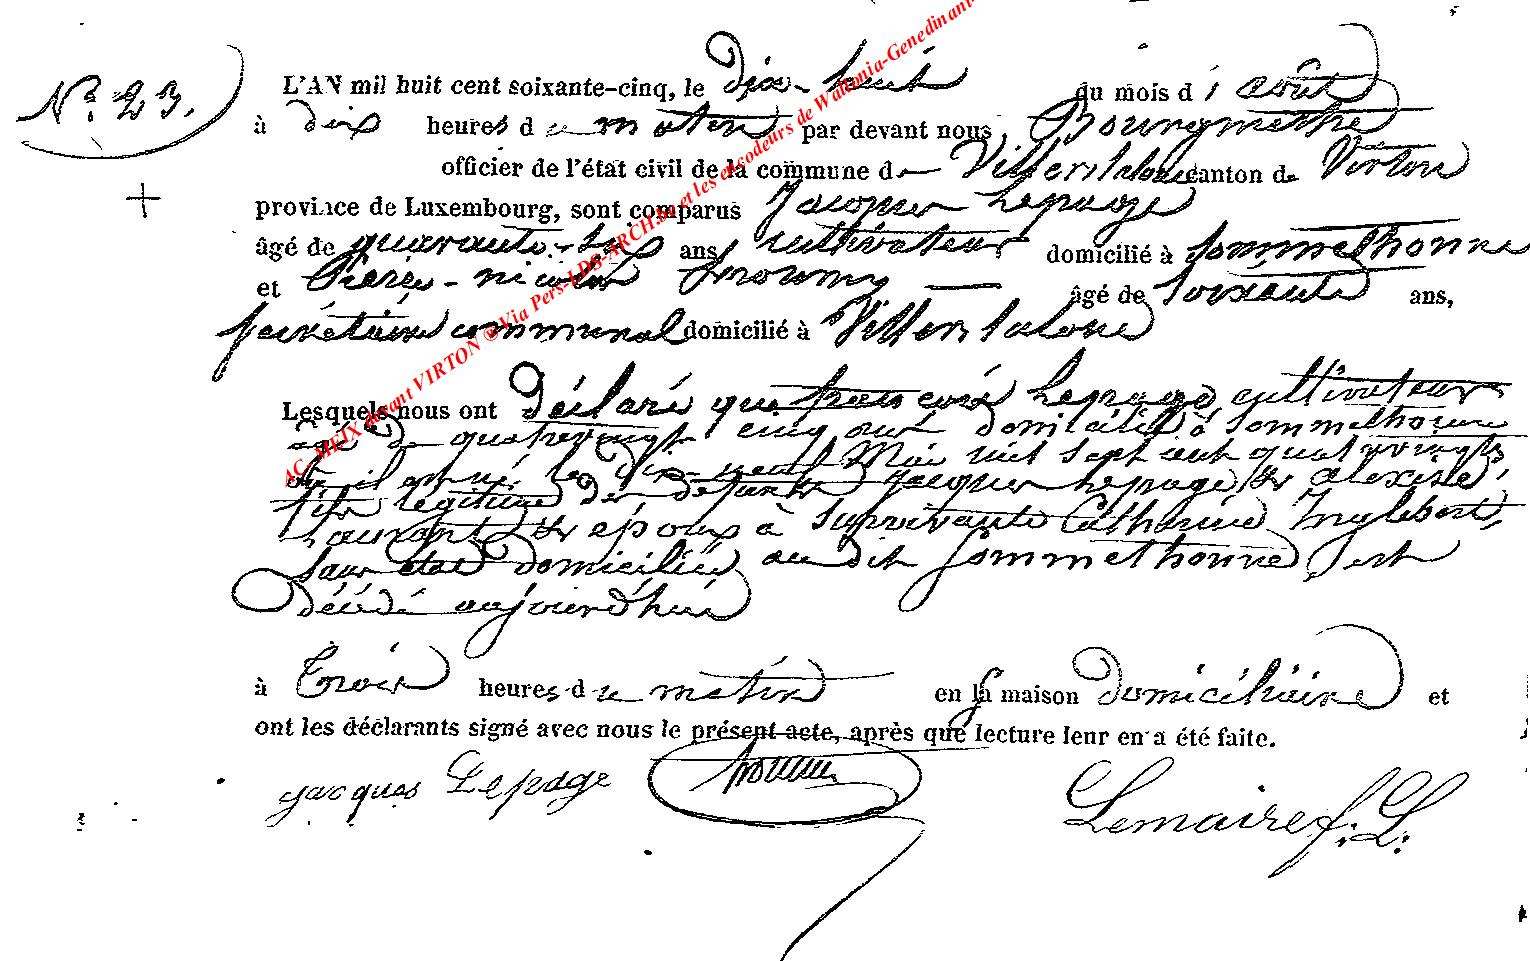 N° 23.
L'AN mil huit cent soixante-cinq, le dix-huit du mois d'août
à dix heures du matin par devant nous, Bourgmestre
officier de l'état civil de la commune de Villers la loue canton de Virton
province de Luxembourg, sont comparus Jacques Lepage
âgé de quarante-six ans cultivateur domicilié à Sommethonne
et Pierre-nicolas âgé de soixante ans,
secrétaire communal domicilié à Villers la loue
Lesquels nous ont déclaré que françois Lepage cultivateur
âgé de quatrevingt cinq ans domicilié à Sommethonne
où il est né le dix-neuf Mai mil sept cent quatrevingts
fils légitime des défunts Jacques Lepage & alexise
Laurent & epoux à Survivante Catherine Inglebert,
sans état domiciliée au dit Sommethonne, est
décédé aujourd'hui
à trois heures du matin en sa maison domiciliaire et
ont les déclarants signé avec nous le présent acte, après que lecture leur en a été faite.
jacques Lepage
Lemaire f: L:
AC MEIX devant VIRTON @ Via Pers-LDS-ARCH.be et les encodeurs de Wallonia-Genedinant